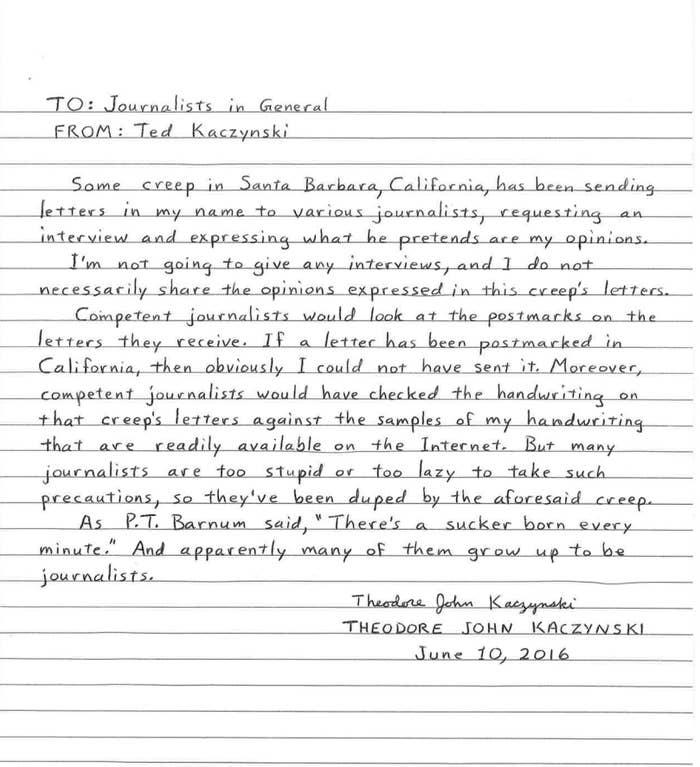 TO: Journalists in General
FROM: Ted Kaczynski
Some creep in Santa Barbara, California, has been sending
letters in my name to various journalists, requesting an
interview and expressing what he pretends are my opinions.
I'm not going to give any interviews, and I do not
necessarily share the opinions expressed in this creep's letters.
Competent journalists would look at the postmarks on the
letters they receive. If a letter has been postmarked in
California, then obviously I could not have sent it. Moreover,
competent journalists would have checked the handwriting on
that creep's letters against the samples of my handwriting
that are readily available on the Internet. But many
journalists are too stupid or too lazy to take such
precautions, so they've been duped by the aforesaid creep.
As P.T. Barnum said, "There's a sucker born every
minute." And apparently many of them grow up to be
journalists.
Theodore John Kaczynski
THEODORE JOHN KACZYNSKI
June 10, 2016